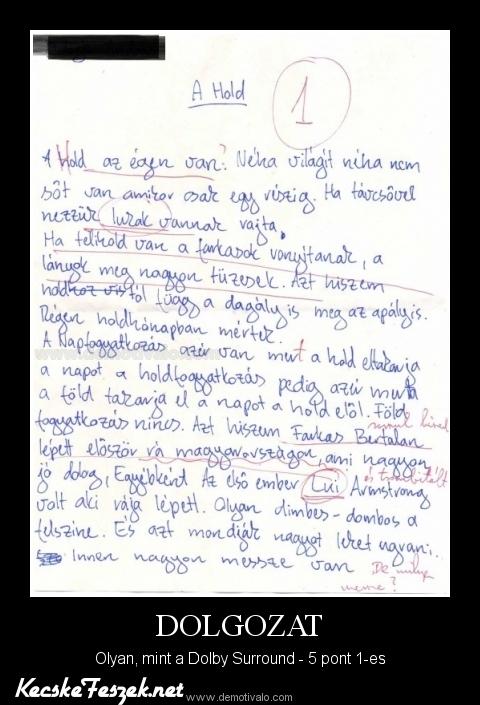 A Hold
1
A Hold az égen van? Néha világít néha nem
sőt van amikor csak egy részig. Ha távcsővel
nezzük lukak vannak rajta.
Ha telihold van a farkasok vonyítanak, a
lányok meg nagyon tüzesek. Azt hiszem
től függ a dagály is meg az apályis.
Régen holdhónapban mértek.
A Napfogyatkozás azér van mert a hold eltakarja
a napot a holdfogyatkozás pedig azér mert
a föld takarja el a napot a hold elöl. Föld
fogyatkozás nincs. Azt hiszem Farkas Bertalan
lépett először rá magyarországon, ami nagyon
és trombitált
jó dolog, Egyébként Az első ember Lui Armstrong
volt aki rája lépett. Olyan dimbes-dombos a
felszine. És azt mondják nagyot lehet ugrani.
Innen nagyon messze van
De milyen
messze?
www.demotivalo.com
DOLGOZAT
Olyan, mint a Dolby Surround - 5 pont 1-es
KecskeFeszek.net
www.demotivalo.com